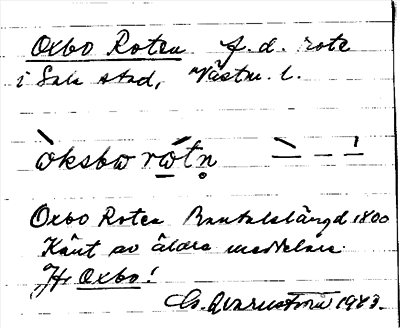 Oxbo Roten f. d. rote
i Sala stad, Västm. l.
Oxbo Roten Mantalslängd 1800
Känt av äldre meddelare.
Jfr Oxbo!
G. Qvarnström 1943.